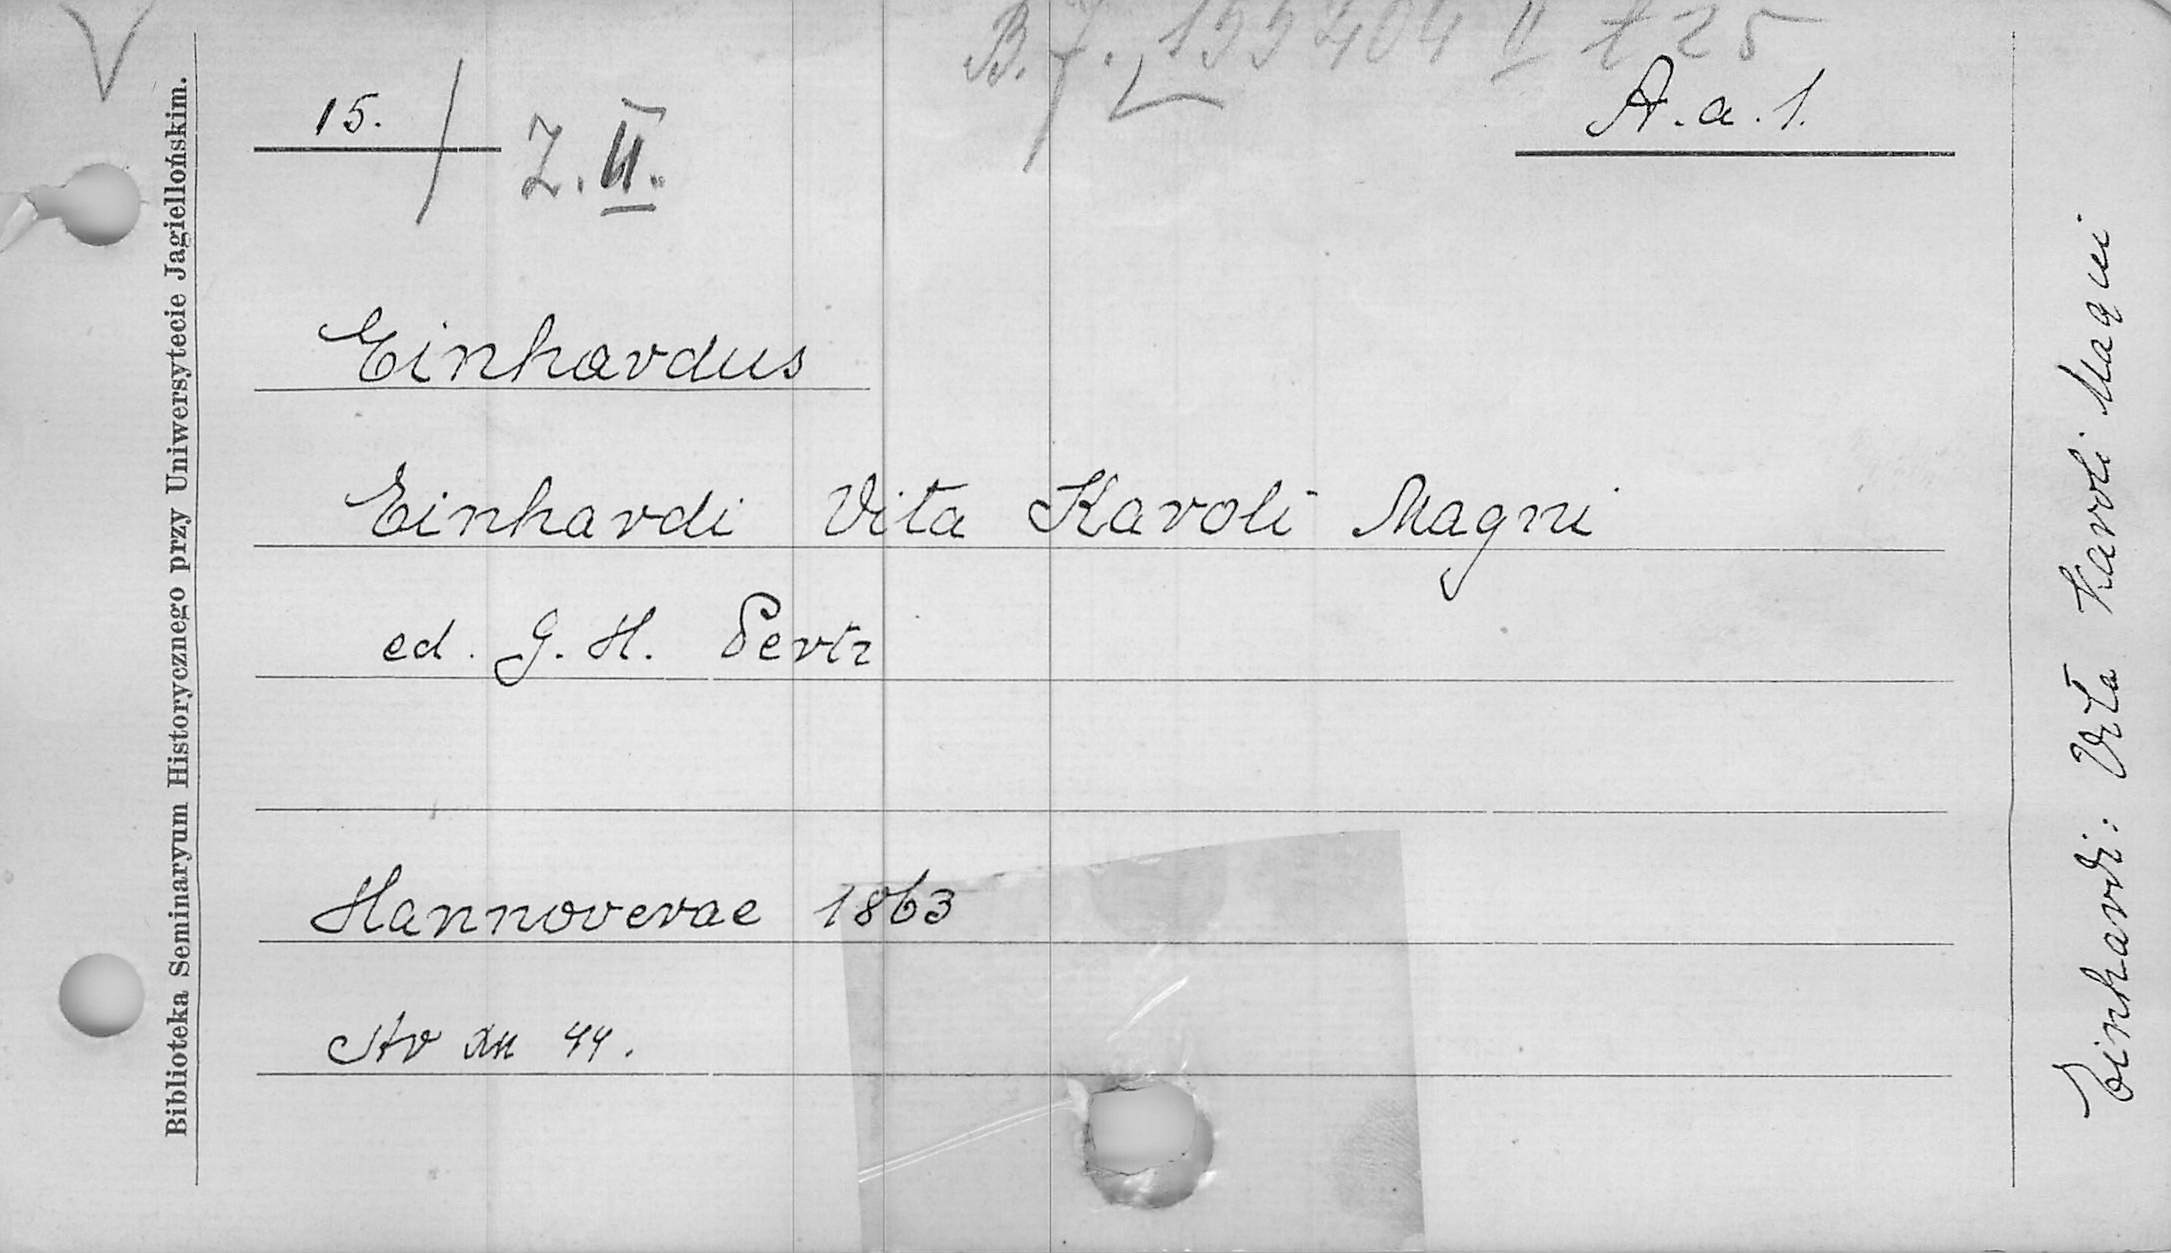 V
B. J. 199404 II t 25
15.
Z. II.
A. a. 1.
Einhardus
Einhardi Vita Karoli Magni
ed. G. H. Pertz
Hannoverae 1863
44.
Biblioteka Seminaryum Historycznego przy Uniwersytecie Jagiellońskim.
Einhardi: Vita Karoli Magni